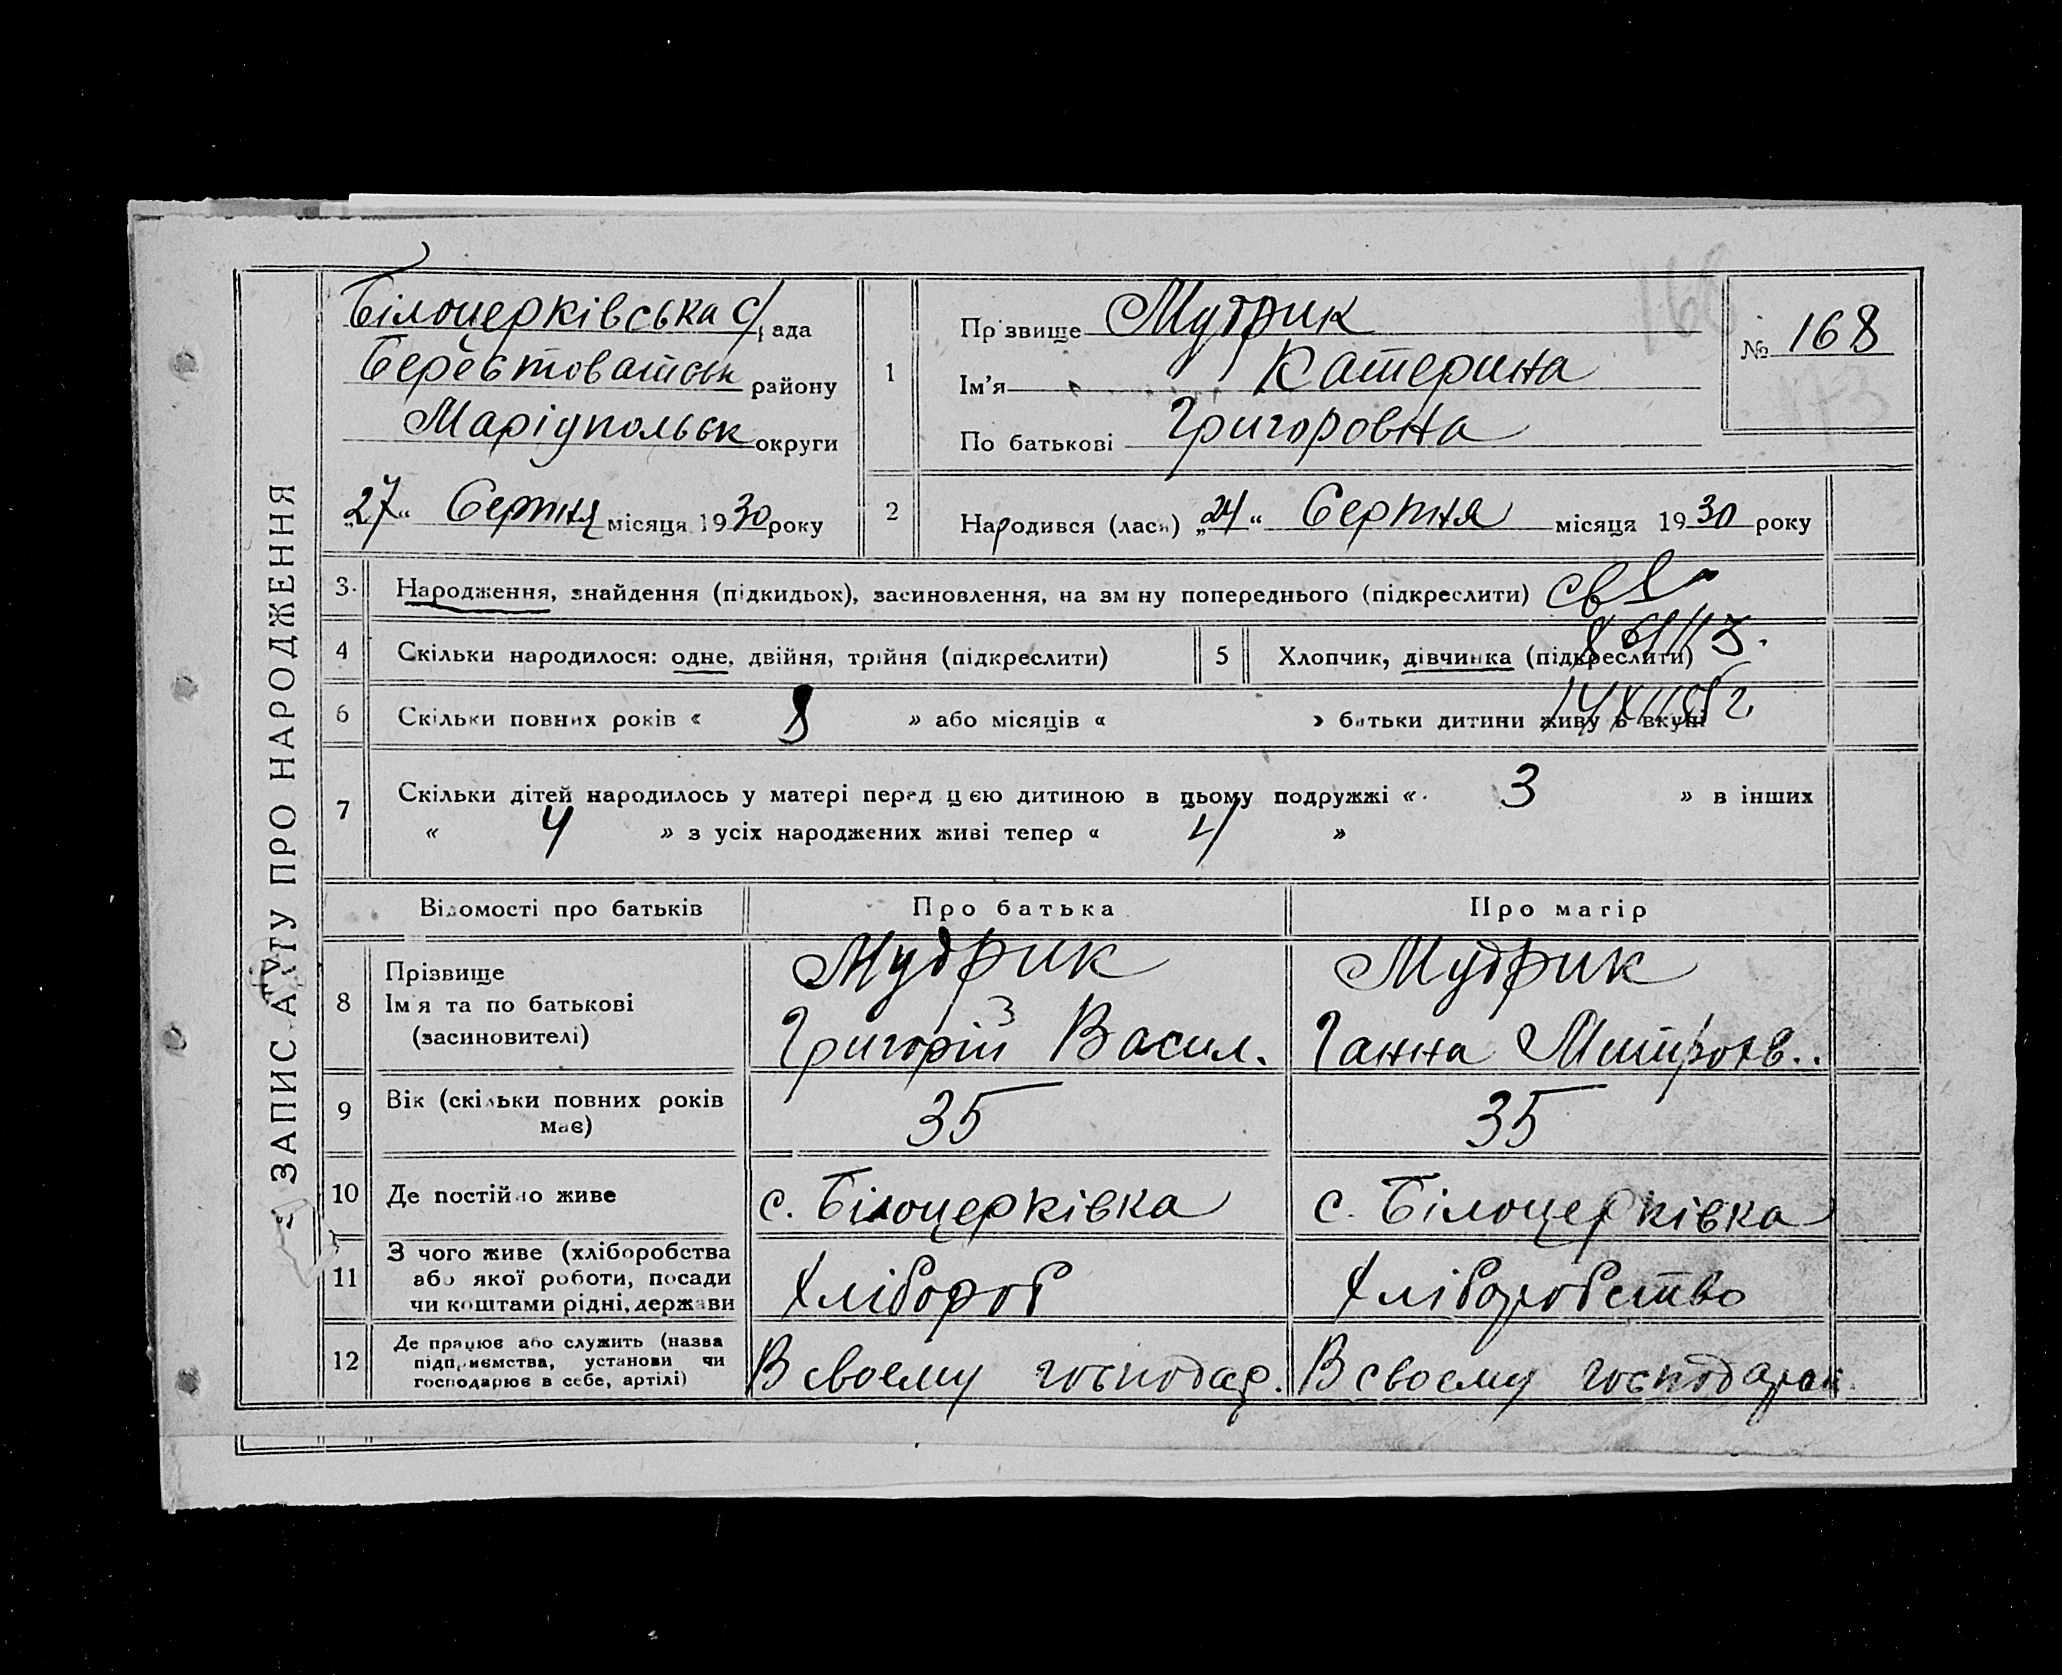 ЗАПИС АКТУ ПРО НАРОДЖЕННЯ
Білоцерківська с/рада
Берестоватськ району
Маріупольськ округи
„27“ Серпня місяця 1930 року
1
Прізвище Мудрик
Ім'я Катерина
По батькові Григоровна
№ 168
173
2
Народився (лася) „24“ Серпня місяця 1930 року
3. Народження, знайдення (підкидьок), засиновлення, на зміну попереднього (підкреслити)
4 Скільки народилося: одне, двійня, трійня (підкреслити)
5 Хлопчик, дівчинка (підкреслити)
6 Скільки повних років « 8 » або місяців « » батьки дитини живуть вкупі
7 Скільки дітей народилось у матері перед цією дитиною в цьому подружжі « 3 » в інших
« 4 » з усіх народжених живі тепер « 4 »
Відомості про батьків Про батька Про матір
8 Прізвище
Ім'я та по батькові
(засиновителі)
Мудрик
Григорій Васил.
Мудрик
Ганна
9 Вік (скільки повних років
має)
35
35
10 Де постійно живе с. Білоцерківка с. Білоцерківка
11 З чого живе (хліборобства
або якої роботи, посади
чи коштами рідні, держави
Хлібороб
Хліборобство
12 Де працює або служить (назва
підприємства, установи чи
господарює в себе, артілі)
В своему господар.
В своему